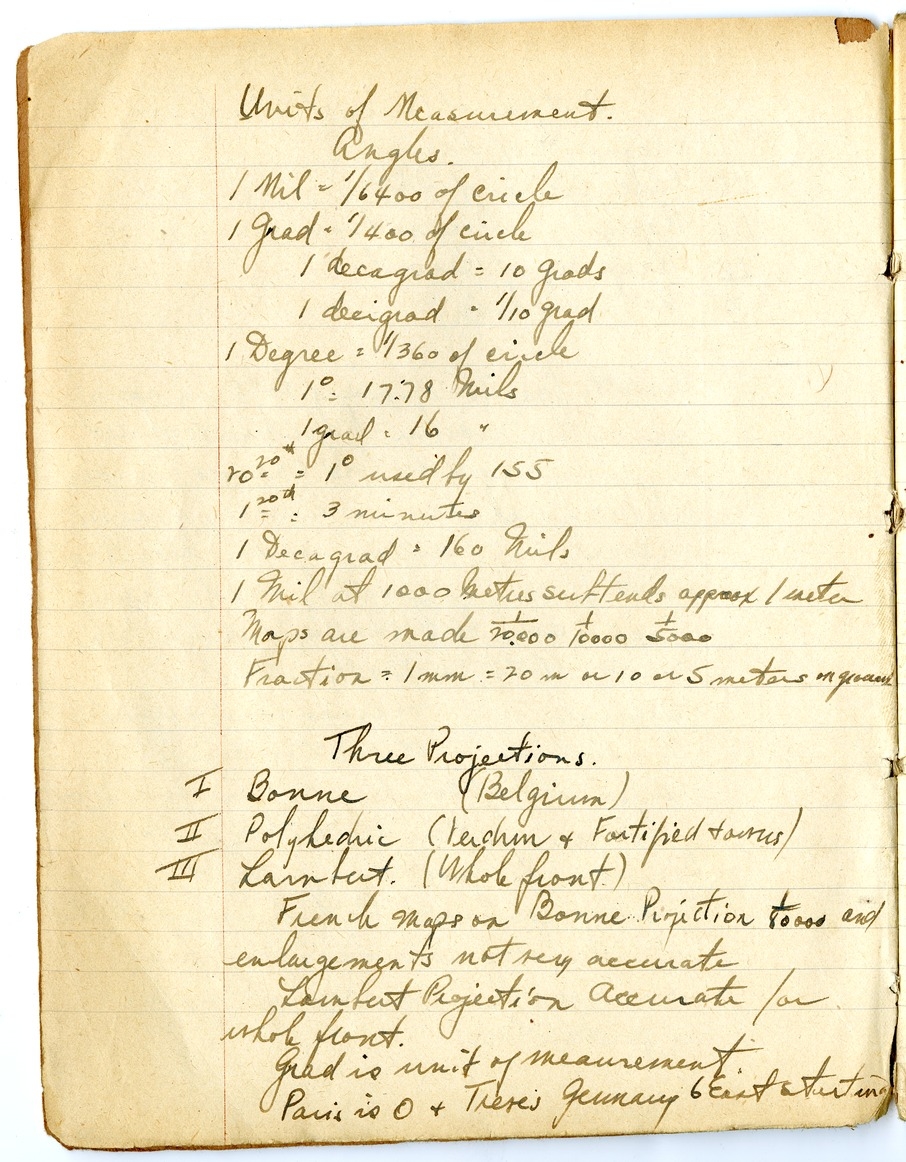 Units of Measurement.
Angles.
1 Mil = 1/6400 of circle
1 Grad = 1/400 of circle
1 decagrad = 10 grads
1 decigrad = 1/10 grad
1 Degree = 1/360 of circle
1° = 17.78 Mils
1 grad = 16 "
20 20th = 1° used by 155
1 20th = 3 minutes
1 Decagrad = 160 Mils
1 Mil at 1000 Metres subtends approx 1 meter
Maps are made 1/20,000 1/10000 1/5000
Fraction = 1 mm = 20 m or 10 or 5 meters on ground
Three Projections.
I Bonne (Belgium)
II Polyhedric (Verdun + Fortified towns)
III Lambert. (Whole front.)
French maps on Bonne Projection 1/80000 and
enlargements not very accurate
Lambert Projection Accurate for
whole front.
Grad is unit of measurement
Paris is 0 + Treves Germany 6 East starting